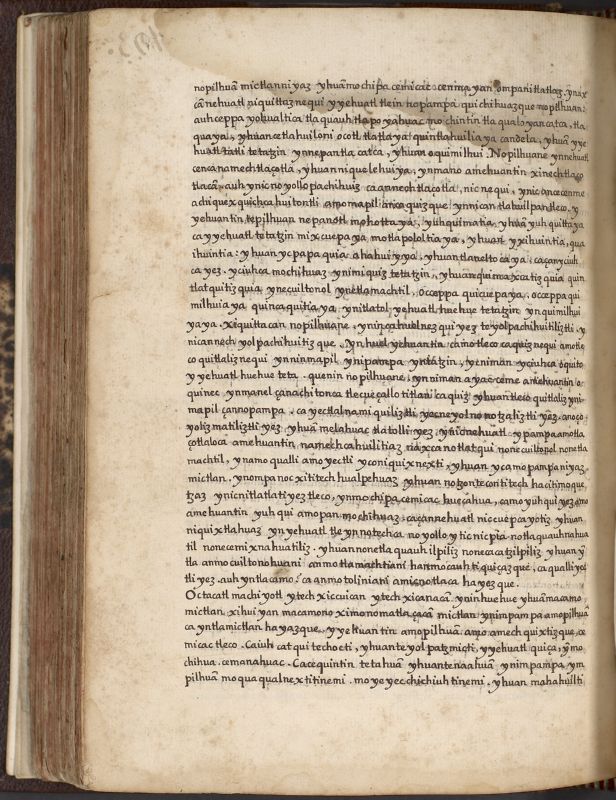 nopilhuã mictlanni yaz yhuã mochipa cemicac cenmayan ompa nitlatlaz. ynax
cã nehuatl niquittaz nequi yyehuatl tlein no pampa quichihuazque mopilhuan:
auhceppa yohualtica tlaquauh tlapoyahuac mochintin tlaqualoyan catca, tla
quayal, yhuan cetlahuiloni ocotl tlatlaya quintlahuiliaya candela, yhuã yye
huatl tatli tetatzin ynnepantla catca, yhuan oquimilhui. Nopilhuane ynnehuatl
cenca namechtlaçotla, yhuan nique lehuiya, ynmano amehuantin xinechtlaço
tlacã. auh ynic noyollo pachihuiz ca annechtlaçotla, nicnequi, ynic ance cenme
achi quexquichca huitontli amomapil anca quizque ynnican tlahuilpan tleco. y
yehuantin tepilhuan nepanotl mohottaya, yuhquimatia, yhuã yuh quittaya
ca yyehuatl tetatzin mixcuepaya motlapololtiaya, yhuan yxihuintia, qua
ihuintia: yhuan yc papaquia ahahuiyya, yhuan tlaneltocaya, caçan yciuh
ca yez. yciuhca mochihuaz ynimiquiz tetatzin, yhuan requimaxcatiz quia quin
tlatquitizquia ynecuiltonol ynetlamachtil, occeppa quicuepaya, occeppa qui
milhuiaya quincaquitiaya, ynitlatol yehuatl huehue tetatzin ynquimilhui
yaya. xiquittacan nopilhuane, ynin ca huel nez qui yez teyolpachihuitiliztli, y
nicannech yolpachihuitizque. Yn huel yehuantin camo tleco caquiz nequi amo tle
co quitlaliznequi ynninmapil ynipampa yntatzin, yeniman yciuhca oquito
yyehuatl huehue teta. quenin nopilhuane, ynniman ayac ceme amehuantin o
quinec ynmanel çan achitonca tlecueçallotitlan ca quiz yhuan tleco quitlaliz yni
mapil çannopampa. ca yectlalnamiquiliztli yecneyolnonotzaliztli yez. anoço
yolizmatiliztli yez yhuã melahuac tlatolli yez, yniºnehuatl ypampa amotla
çotlaloca amehuantin namechcahuilitiaz riaxca notlatqui nonecuiltonol nonetla
machtil, ynamo qualli amo yectli yconiquixnexti, yhuan ycamopampa niyaz,
mictlan. ynompa noc xititech hualpehuaz yhuan notzontecontitech hacitimoque
tzaz ynicnitlatlatiyez tleco, ynmochipa cemicac huecahua, camo yuhqui yez amo
amehuantin yuhqui amopan mochihuaz: caçannehuatl niccuepcayotiz yhuan
niquixtlahuaz ynyehuatl tleynnotzchca noyollo ytic nicpia notlaquauhnahua
til nonecemixnahuatiliz. yhuan nonetlaquauh ilpiliz nonecacatzilpiliz yhuan yn
tla anmocuiltonohuani anmotlamachtiani hanmocauhtiquiçazque, ca qualli yec
tli yez. auh yntlacamo ca anmotoliniani amicnotlaca hayezque.
Octacatl machiyotl ytech xiccuican ytech xicanacã. yninhuehue yhuãmacamo
mictlan xihuiyan macamono ximonomatlaçacã mictlan ynimpampa amopilhuã
ca yntla mictlan hayazque, yyehuantin amopilhuã amo amechquixtizque, ce
micac tleco. caiuhcatqui techocti, yhuan teyolpatzmicti, yyehuatl quiça, ynmo
chihua. cemanahuac. Cacequintin tetahuã yhuan tenaahuã ynimpampa, ym
pilhuã moquaqualnextitinemi. moyeyecchichiuhtinemi. yhuan mahahuilti